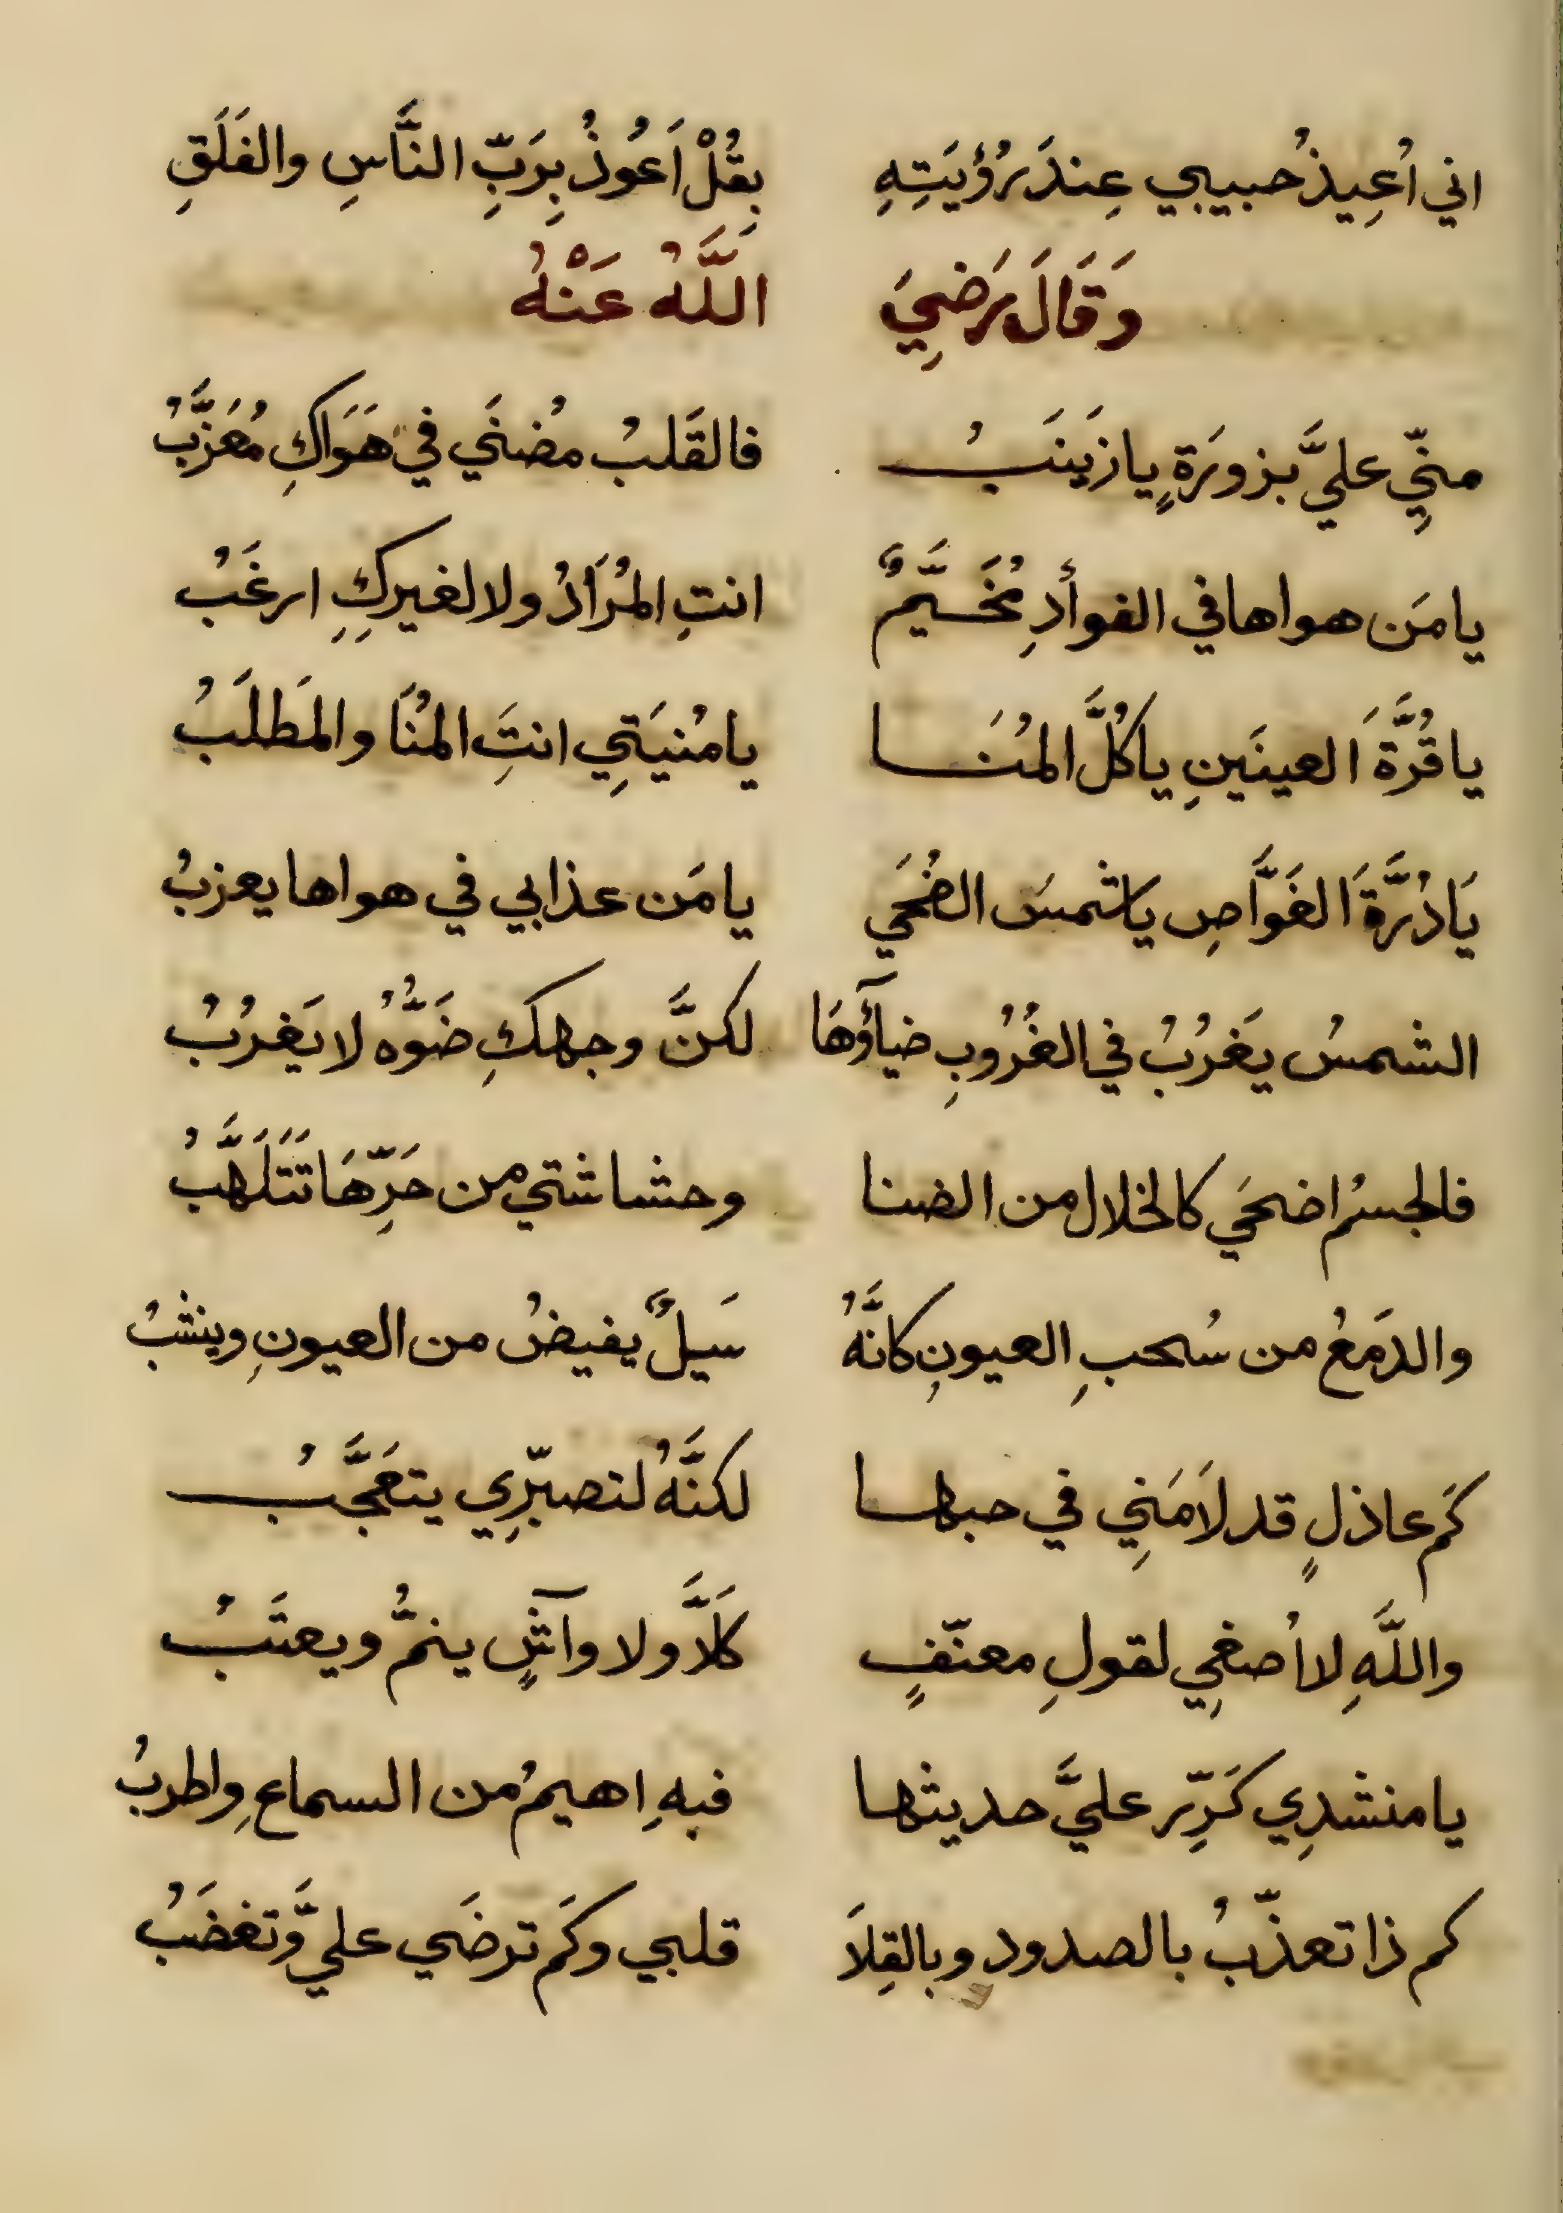 اني اُعِيذُ حبيبي عِندَ رُؤيَتِهِ بِقُلْ اَعُوذُ بِرَبِّ النَّاسِ والفَلَقِ
وَقَالَ رَضِيَ اللَّهُ عَنْهُ
منّي عليَّ بزورَةٍ يا زَينَبُ فالقَلبُ مُضنَي في هَوَاكِ مُعَزَّبُ
يا مَن هواها في الفوأدِ مُخَيَّمٌ انتِ المُرَادُ ولا لغيركِ ارغَبُ
يا قُرَّةَ العينَينِ يا كُلَّ المُنَا يا مُنيَتِي انتِ المُنَا والمَطلَبُ
يَا دُرَّةَ الغَوَّاصِ يا شمسَ الضُحَي يا مَن عذابي في هواها يعزبُ
الشمسُ يَغرُبُ في الغُرُوبِ ضياؤُهَا لكنَّ وجهكِ ضَوُّهُ لا يَغرُبُ
فالجسمُ اضحَي كالخلال من الضنا وحشاشتي من حَرِّهَا تَتَلَهَّبُ
والدَمعُ من سُحبِ العيونِ كانَّهُ سَيلٌ يفيضُ من العيونِ وينشبُ
كَم عاذلٍ قد لاَمَنِي في حبها لكنَّهُ لتصبّرِي يتعَجَّبُ
واللَّهِ لا اُصغِي لقولِ معنّفٍ كَلاَّ ولا وآشٍ ينمُّ ويعتَبُ
يا منشدِي كَرِّر عليَّ حديثها فبهِ اهيمُ من السماعِ واطربُ
كم ذا تعذّبُ بالصدود وبالقِلاَ قلبي وكَم ترضَي عليَّ وتغضَبُ